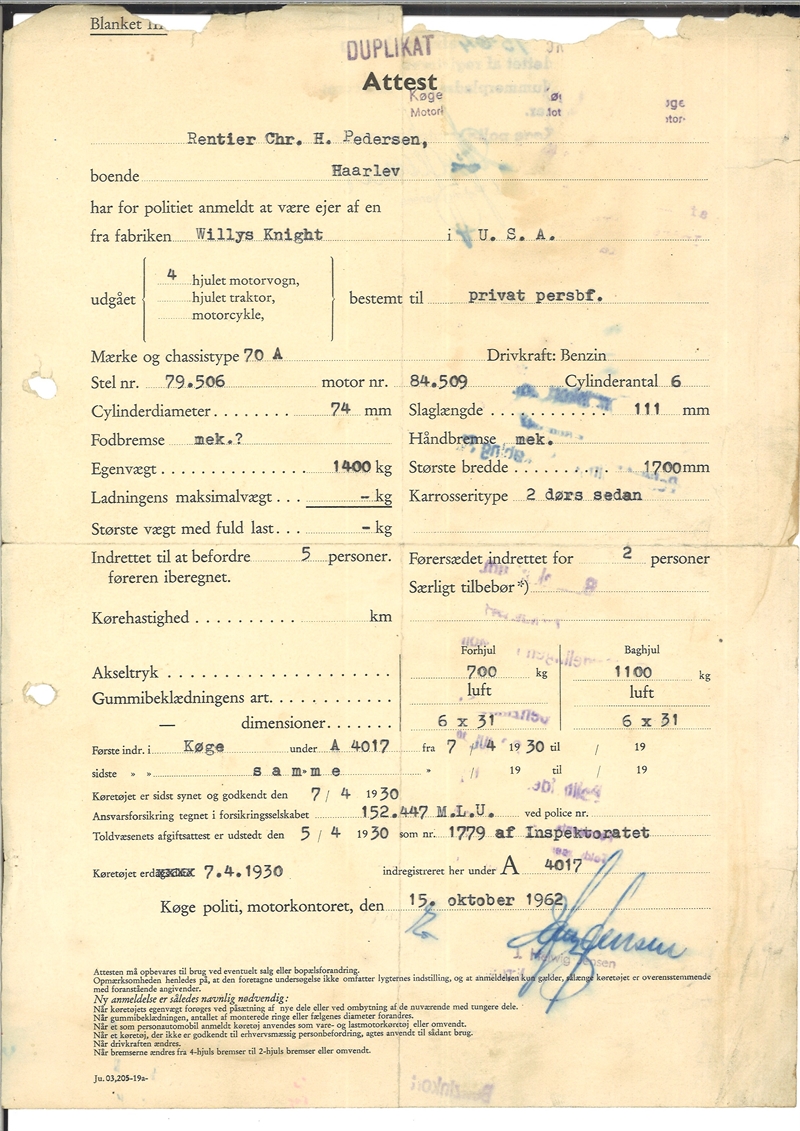 Blanket
DUPLIKAT
Attest
Køge
Motor
Rentier Chr. H. Pedersen,
boende Haarlev
har for politiet anmeldt at være ejer af en
fra fabriken Willys Knight i U. S. A.
udgået
4 hjulet motorvogn,
hjulet traktor,
motorcykle,
bestemt til privat persbf.
Mærke og chassistype 70 A Drivkraft: Benzin
Stel nr. 79.506 motor nr. 84.509 Cylinderantal 6
Cylinderdiameter........ 74 mm Slaglængde............ 111 mm
Fodbremse mek.? Håndbremse mek.
Egenvægt.............. 1400 kg Største bredde.......... 1700 mm
Ladningens maksimalvægt... - kg Karrosseritype 2 dørs sedan
Største vægt med fuld last... - kg
Indrettet til at befordre 5 personer. Førersædet indrettet for 2 personer
føreren iberegnet. Særligt tilbehør*)
Kørehastighed.......... km
Forhjul Baghjul
Akseltryk.................... 700 kg 1100 kg
Gummibeklædningens art............ luft luft
— dimensioner....... 6 x 31 6 x 31
Første indr. i Køge under A 4017 fra 7 / 4 1930 til / 19
sidste » » samme » / 19 til / 19
Køretøjet er sidst synet og godkendt den 7 / 4 1930
Ansvarsforsikring tegnet i forsikringsselskabet 152.447 M.L.U. ved police nr.
Toldvæsenets afgiftsattest er udstedt den 5 / 4 1930 som nr. 1779 af Inspektoratet
Køretøjet er 7.4.1930 indregistreret her under A 4017
Køge politi, motorkontoret, den 15. oktober 1962
Attesten må opbevares til brug ved eventuelt salg eller bopælsforandring.
Opmærksomheden henledes på, at den foretagne undersøgelse ikke omfatter lygternes indstilling, og at anmeldelsen kun gælder, sålænge køretøjet er overensstemmende
med foranstående angivender.
Ny anmeldelse er således navnlig nødvendig:
Når køretøjets egenvægt forøges ved påsætning af nye dele eller ved ombytning af de nuværende med tungere dele.
Når gummibeklædningen, antallet af monterede ringe eller fælgenes diameter forandres.
Når et som personautomobil anmeldt køretøj anvendes som vare- og lastmotorkøretøj eller omvendt.
Når et køretøj, der ikke er godkendt til erhvervsmæssig personbefordring, agtes anvendt til sådant brug.
Når drivkraften ændres.
Når bremserne ændres fra 4-hjuls bremser til 2-hjuls bremser eller omvendt.
Ju. 03,205-19a-